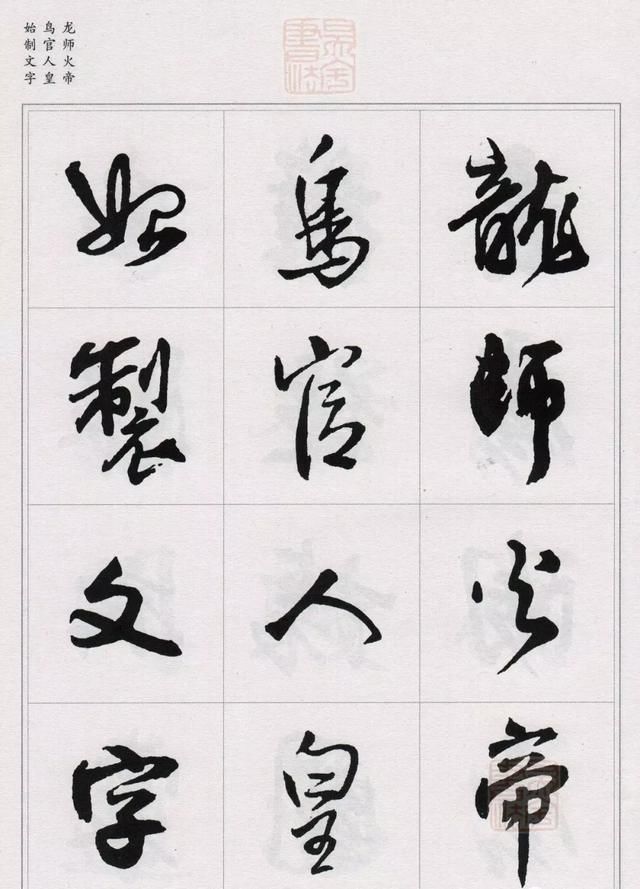 龙师火帝
鸟官人皇
始制文字
龍師火帝
鳥官人皇
始製文字